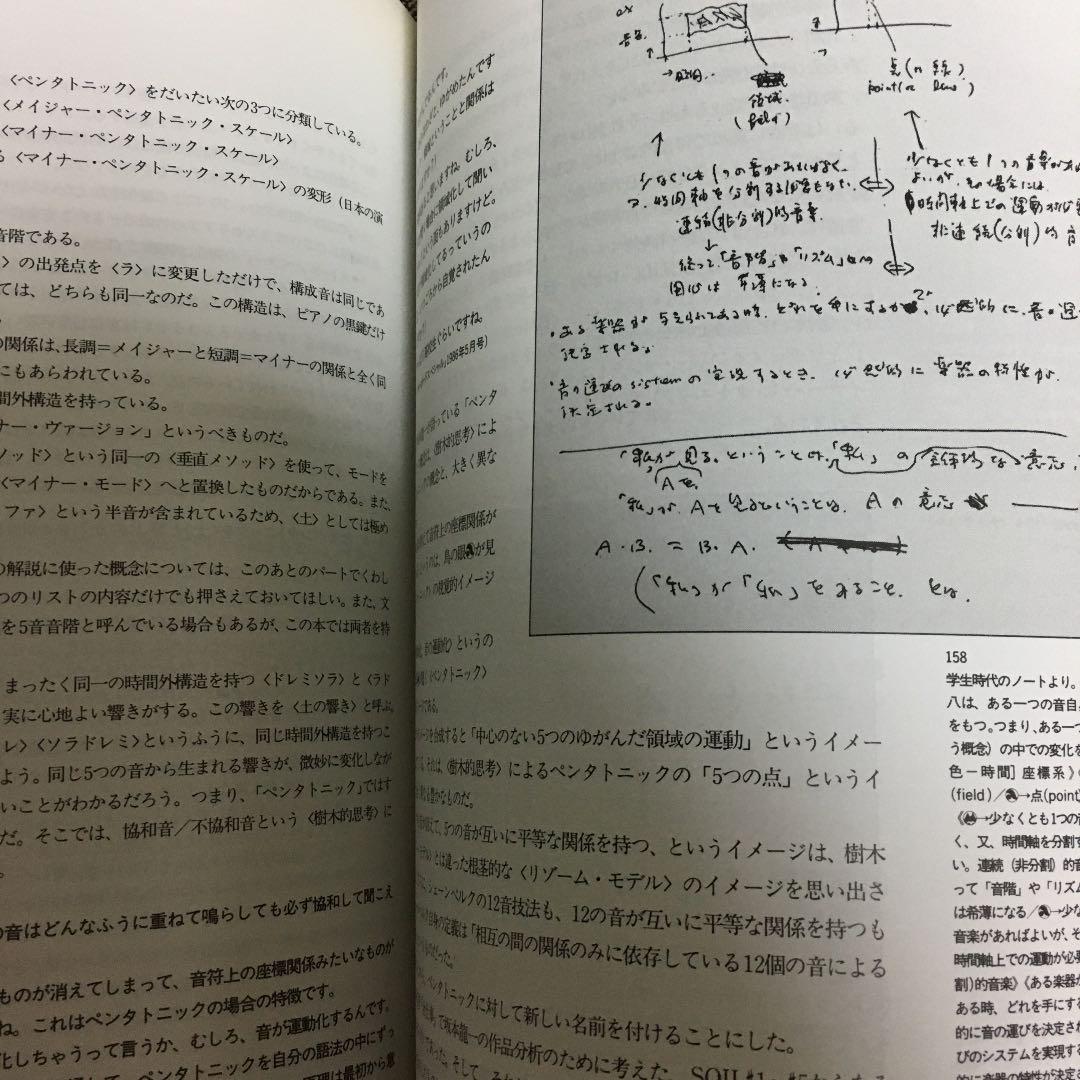 〈ペンタトニック〉をだいたい次の3つに分類している。
〈メイジャー・ペンタトニック・スケール〉
〈マイナー・ペンタトニック・スケール〉
〈マイナー・ペンタトニック・スケール〉の変形（日本の演
音階である。
〉の出発点を〈ラ〉に変更しただけで、構成音は同じであ
ては、どちらも同一なのだ。この構造は、ピアノの黒鍵だけ
の関係は、長調＝メイジャーと短調＝マイナーの関係と全く同
にもあらわれている。
間外構造を持っている。
ナー・ヴァージョン」というべきものだ。
ソッド〉という同一の〈垂直メソッド〉を使って、モードを
〈マイナー・モード〉へと置換したものだからである。また、
ファ〉という半音が含まれているため、〈土〉としては極め
の解説に使った概念については、このあとのパートでくわし
つのリストの内容だけでも押さえておいてほしい。また、文
を5音音階と呼んでいる場合もあるが、この本では両者を特
まったく同一の時間外構造を持つ〈ドレミソラ〉と〈ラド
実に心地よい響きがする。この響きを〈土の響き〉と呼ぶ。
レ〉〈ソラドレミ〉というふうに、同じ時間外構造を持つこ
よう。同じ5つの音から生まれる響きが、微妙に変化しなが
いことがわかるだろう。つまり、「ペンタトニック」ではす
だ。そこでは、協和音／不協和音という〈樹木的思考〉に
の音はどんなふうに重ねて鳴らしても必ず協和して聞こえ
ものが消えてしまって、音符上の座標関係みたいなものが
ね。これはペンタトニックの場合の特徴です。
化しちゃうって言うか、むしろ、音が運動化するんです。
ペンタトニックを自分の語法の中にずっ
音楽
→時間
領域
(field)
点(or 線)
point(or line)
少なくとも1つの音があればよく、
又、時間軸を分割する必要もない。
連続(非分割)的音楽
従って「音階」や「リズム」への
関心は希薄になる
少なくとも1つの音楽があれば
よいが、その場合には
時間軸上での運動が必要
非連続(分割)的音
・ある楽器が与えられてある時、どれを手にするかで、必然的に音の運
決定される。
・音の運びのsistemの実現するとき、必然的に楽器の特性が
決定される。
「私が見る」ということは、「私」の主体的な意志、
Aを
「私」がAを見るということは、Aの意志
A・B. = B・A.
(「私」が「私」をみること、とは、
ゆがめたんです
ということと関係は
と思いますね。むしろ、
領域化して聞い
という面もありますけど。
化してるっていうの
ころから自覚されたん
ぐらいですね。
1986年5月号)
っている「ペンタ
〈樹木的思考〉によ
の概念と、大きく異な
て音符上の座標関係が
というのは、鳥の眼が見
の視覚的イメージ
音の運動化〉というの
〈ペンタトニック〉
である。
を合成すると「中心のない5つのゆがんだ領域の運動」というイメー
それは、〈樹木的思考〉によるペンタトニックの「5つの点」というイ
豊かなものだ。
5つの音が互いに平等な関係を持つ、というイメージは、樹木
とは違った根茎的な〈リゾーム・モデル〉のイメージを思い出さ
シェーンベルクの12音技法も、12の音が互いに平等な関係を持つも
自身の定義は「相互の間の関係のみに依存している12個の音による
ものだった。
ペンタトニックに対して新しい名前を付けることにした。
坂本龍一の作品分析のために考えた、SOIL#1
であった。そして、
158
学生時代のノートより。
八は、ある一つの音自
をもつ。つまり、ある一つ
う概念）の中での変化を
色－時間］座標系》
(field)／→点(point)
《→少なくとも1つの音
く、又、時間軸を分割す
い。連続（非分割）的音
って「音階」や「リズム
は希薄になる／→少な
音楽があればよいが、そ
時間軸上での運動が必要
割)的音楽》《ある楽器が
ある時、どれを手にする
的に音の運びを決定され
びのシステムを実現する
的に楽器の特性が決定さ